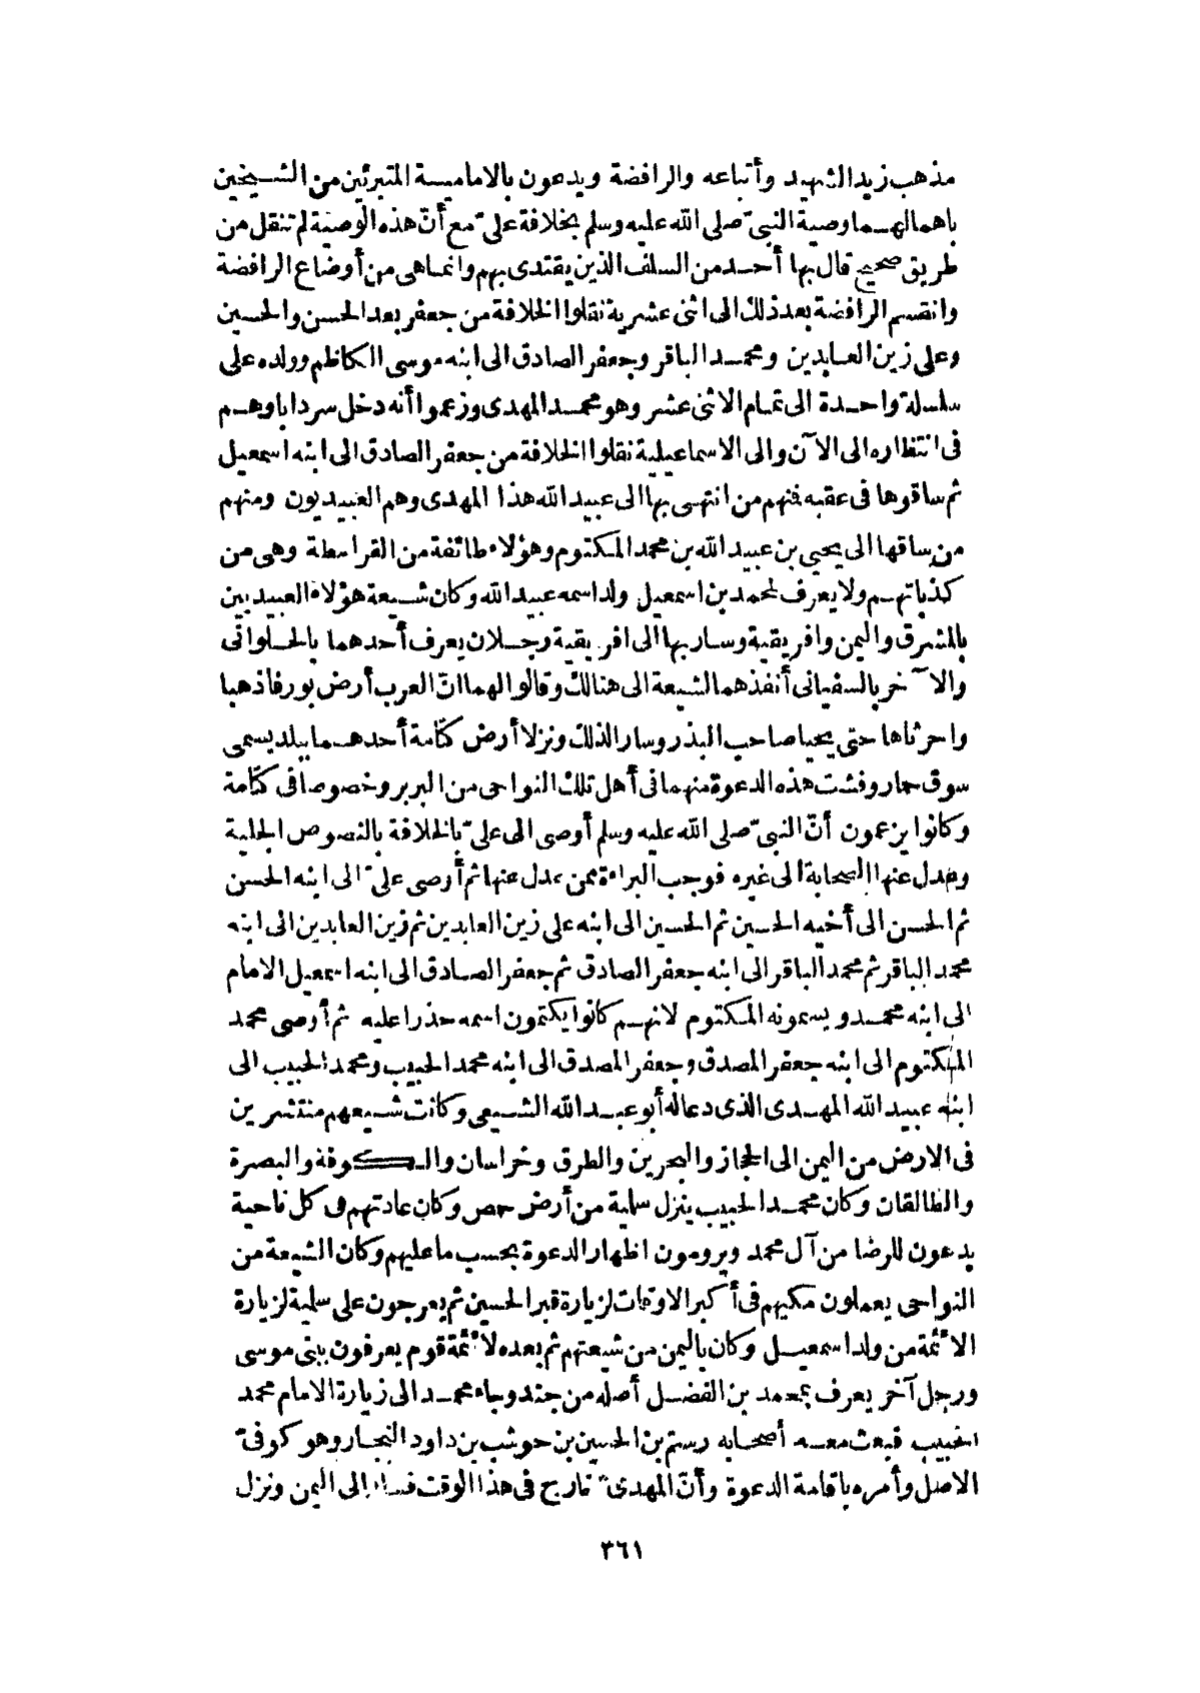 مذهب زيد الشهيد وأتباعه والرافضة ويدعون بالامامية المتبرئين من الشيخين
باهمالهما وصية النبي صلى الله عليه وسلم بخلافة علي مع أنّ هذه الوصية لم تنقل من
طريق صحيح قال بها أحد من السلف الذين يقتدى بهم وانما هى من أوضاع الرافضة
وانقسم الرافضة بعد ذلك الى اثنى عشرية نقلوا الخلافة من جعفر بعد الحسن والحسين
وعلى زين العابدين ومحمد الباقر وجعفر الصادق الى ابنه موسى الكاظم وولده على
سلسلة واحدة الى تمام الاثنى عشر وهو محمد المهدى وزعموا أنه دخل سردابا وهم
فى انتظاره الى الآن والى الاسماعيلية نقلوا الخلافة من جعفر الصادق الى ابنه اسمعيل
ثم ساقوها فى عقبه فمنهم من انتهى بها الى عبيد الله هذا المهدى وهم العبيديون ومنهم
من ساقها الى يحيى بن عبيد الله بن محمد المكتوم وهؤلاء طائفة من القرامطة وهى من
كذباتهم ولا يعرف لمحمد بن اسمعيل ولد اسمه عبيد الله وكان شيعة هؤلاء العبيديين
بالمشرق واليمن وافريقية وسار بها الى افريقية رجلان يعرف أحدهما بالحلوانى
والآخر بالسفيانى أنفذهما الشيعة الى هنالك وقالوا لهما انّ العرب أرض بور فاذهبا
واحرثاها حتى يجيا صاحب البذر وسار الذلك ونزلا أرض كتامة أحدهما ببلد يسمى
سوق حمار وفشت هذه الدعوة منهما فى أهل تلك النواحى من البربر وخصوصا فى كتامة
وكانوا يزعمون أنّ النبي صلى الله عليه وسلم أوصى الى علي بالخلافة بالنصوص الجلية
وعدل عنها الصحابة الى غيره فوجب البراءة ممن عدل عنها ثم أوصى علي الى ابنه الحسن
ثم الحسن الى أخيه الحسين ثم الحسين الى ابنه على زين العابدين ثم زين العابدين الى ابنه
محمد الباقر ثم محمد الباقر الى ابنه جعفر الصادق ثم جعفر الصادق الى ابنه اسمعيل الامام
الى ابنه محمد ويسمونه المكتوم لانهم كانوا يكتمون اسمه حذرا عليه ثم أوصى محمد
المكتوم الى ابنه جعفر المصدق وجعفر المصدق الى ابنه محمد الحبيب ومحمد الحبيب الى
ابنه عبيد الله المهدى الذى دعا له أبو عبد الله الشيعى وكانت شيعهم منتشرين
فى الارض من اليمن الى الحجاز والبحرين والطرق وخراسان والكوفة والبصرة
والطالقان وكان محمد الحبيب ينزل سلمية من أرض حمص وكان عادتهم فى كل ناحية
يدعون للرضا من آل محمد ويرومون اظهار الدعوة بحسب ما عليهم وكان الشيعة من
النواحى يعملون مكيهم فى أكبر الاوقات لزيارة قبر الحسين ثم يعرجون على سلمية لزيارة
الائمة من ولد اسمعيل وكان باليمن من شيعتهم ثم بعده لائمة قوم يعرفون ببنى موسى
ورجل آخر يعرف بمحمد بن الفضل أصله من جند وجاء محمد الى زيارة الامام محمد
الحبيب فبعث معه أصحابه رستم بن الحسين بن حوشب بن داود النجار وهو كوفىّ
الاصل وأمره باقامة الدعوة وأنّ المهدى خارج فى هذا الوقت فسار الى اليمن ونزل
٣٦١